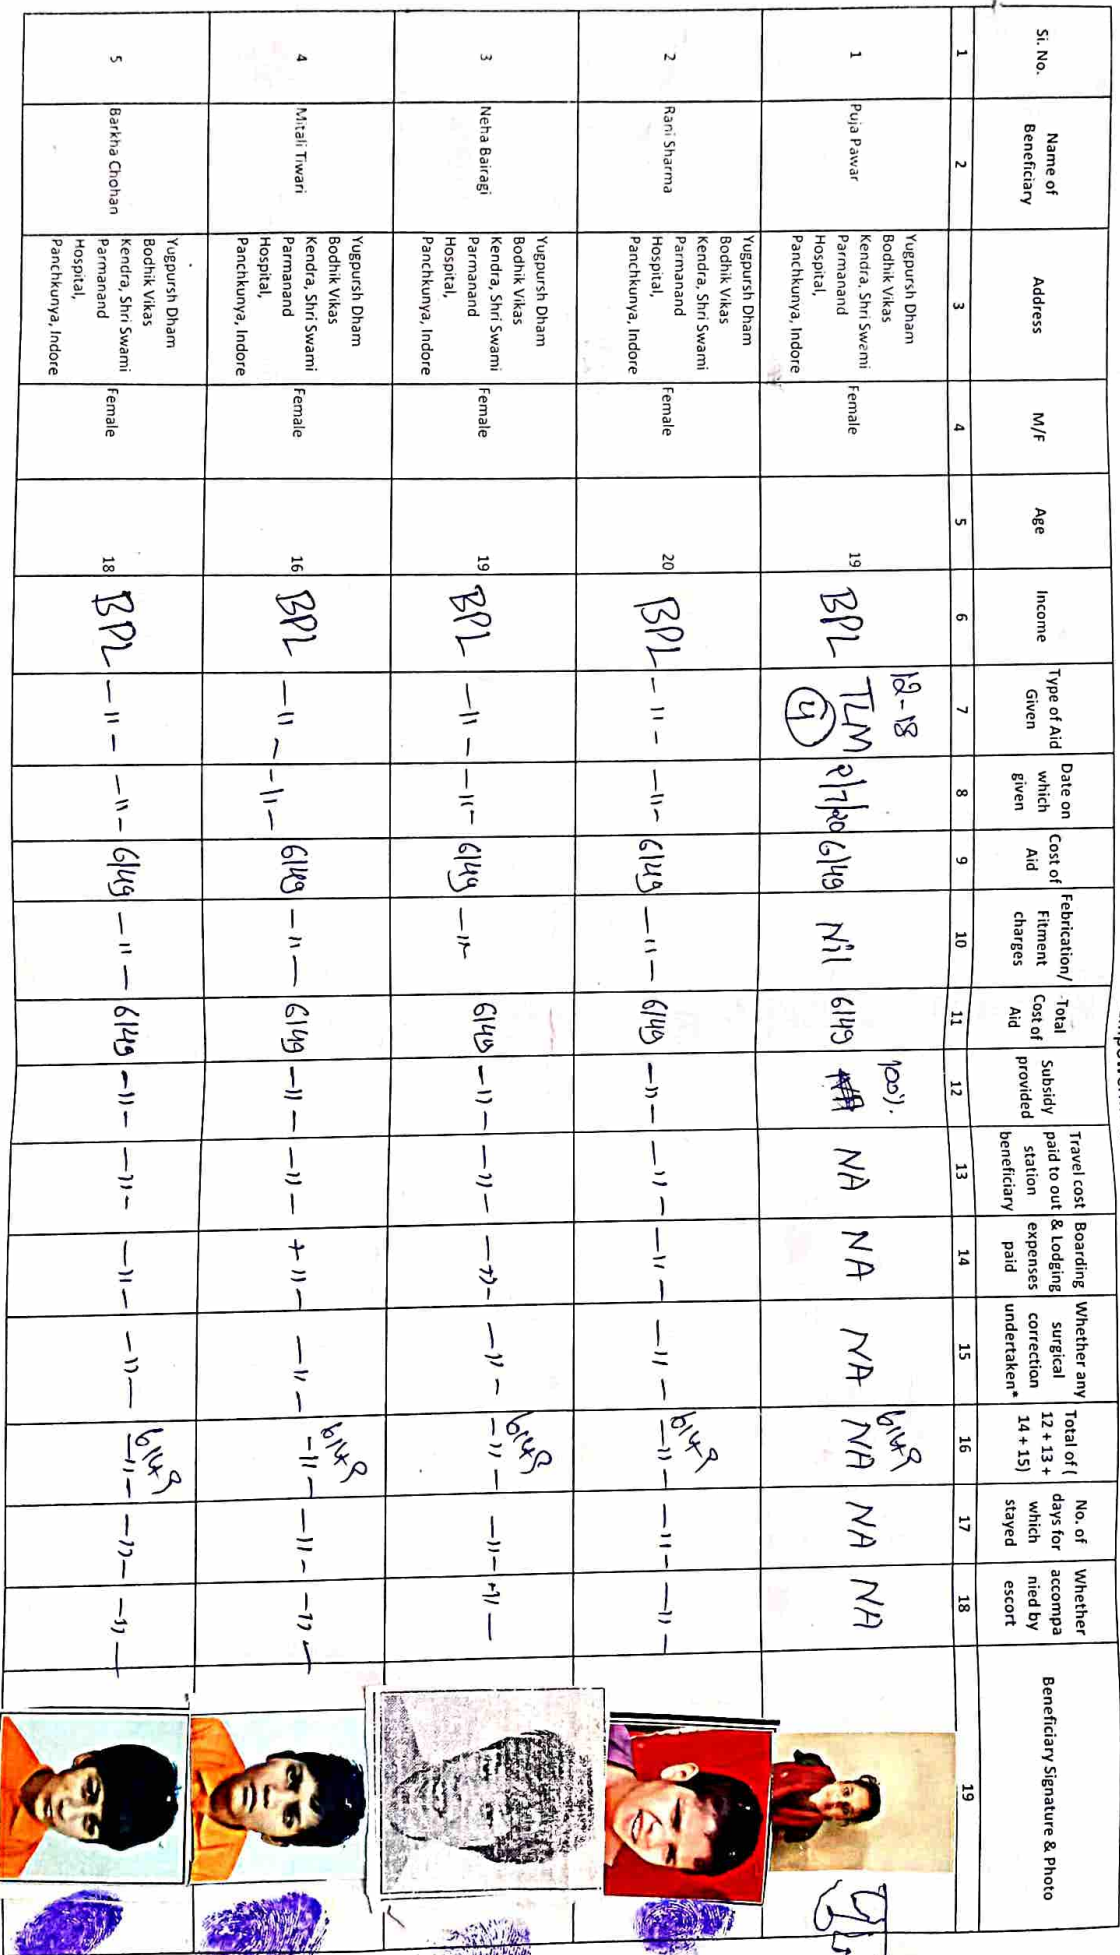 Si. No.
Name of
Beneficiary
Address
M/F
Age
Income
Type of Aid
Given
Date on
which
given
Cost of
Aid
Febrication/
Fitment
charges
Total
Cost of
Aid
Subsidy
provided
Travel cost
paid to out
station
beneficiary
Boarding
& Lodging
expenses
paid
Whether any
surgical
correction
undertaken*
Total of (
12 + 13 +
14 + 15)
No. of
days for
which
stayed
Whether
accompa
nied by
escort
Beneficiary Signature & Photo
1 2 3 4 5 6 7 8 9 10 11 12 13 14 15 16 17 18 19
1
Puja Pawar
Yugpursh Dham
Bodhik Vikas
Kendra, Shri Swami
Parmanand
Hospital,
Panchkunya, Indore
Female
19
BPL
12-18
TLM
4
6149
Nil
6149
100%
NA
NA
NA
6149
NA
NA
NA
2
Rani Sharma
Yugpursh Dham
Bodhik Vikas
Kendra, Shri Swami
Parmanand
Hospital,
Panchkunya, Indore
Female
20
BPL
-11-
-11-
6149
-11-
6149
-11-
-11-
-11-
-11-
6149
-11-
-11-
-11-
3
Neha Bairagi
Yugpursh Dham
Bodhik Vikas
Kendra, Shri Swami
Parmanand
Hospital,
Panchkunya, Indore
Female
19
BPL
-11-
-11-
6149
-11-
6149
-11-
-11-
-11-
-11-
6149
-11-
-11-
-11-
4
Mitali Tiwari
Yugpursh Dham
Bodhik Vikas
Kendra, Shri Swami
Parmanand
Hospital,
Panchkunya, Indore
Female
16
BPL
-11-
-11-
6149
-11-
6149
-11-
-11-
-11-
-11-
6149
-11-
-11-
-11-
5
Barkha Chohan
Yugpursh Dham
Bodhik Vikas
Kendra, Shri Swami
Parmanand
Hospital,
Panchkunya, Indore
Female
18
BPL
-11-
-11-
6149
-11-
6149
-11-
-11-
-11-
-11-
6149
-11-
-11-
-11-